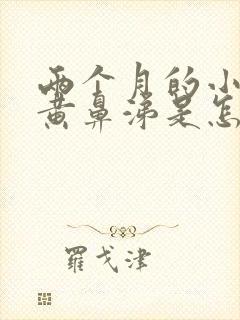 两个月的小
黄鼻涕是怎
羅戈津